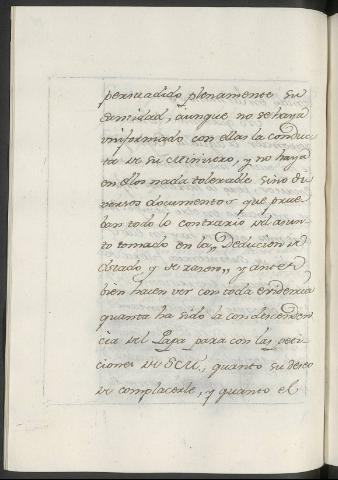 persuadido plenamente Su
Santidad, aunque no se haya
uniformado con ellas la conduc
ta de su Ministro, y no haya
en ellos nada tolerable sino di
versos documentos que prue
ban todo lo contrario del asun-
to tomado en la, Deducion de
estado y de razon,, y antes
bien hacen ver con toda evidencia
quanta ha sido la condescenden
cia del Papa para con las peti-
ciones de SCM., quanto su deseo
de complacerle, y quanto el